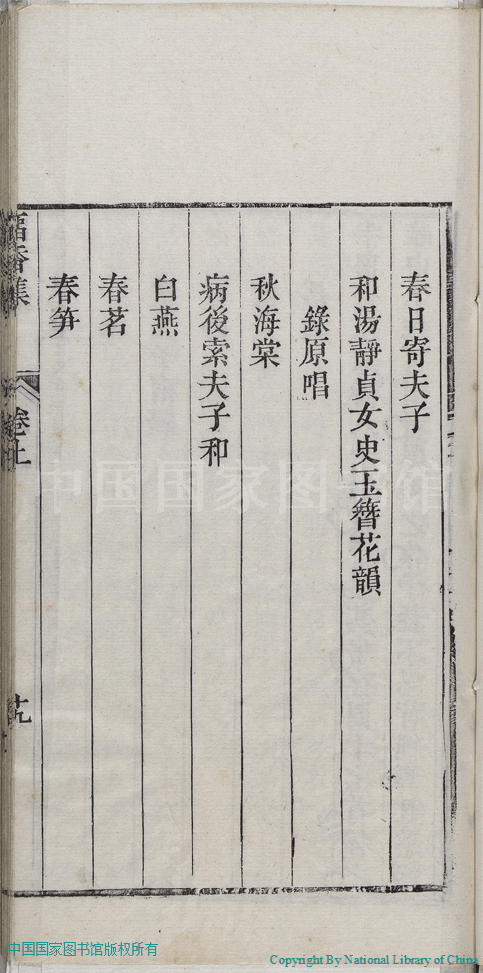 春日寄夫子
和湯靜貞女史玉簪花韻
錄原唱
秋海棠
病後索夫子和
白燕
春茗
春笋
香集
卷上
十九
中国国家图书馆
中国国家图书馆版权所有
Copyright By National Library of China